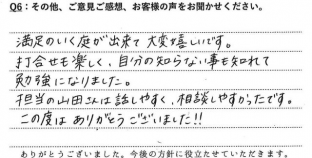 Q6：その他、ご意見ご感想、お客様の声をお聞かせください。
満足のいく庭が出来て大変嬉しいです。
打合せも楽しく、自分の知らない事も知れて
勉強になりました。
担当の山田さんは話しやすく、相談しやすかったです。
この度はありがとうございました!!
ありがとうございました。今後の方針に役立たせていただきます。